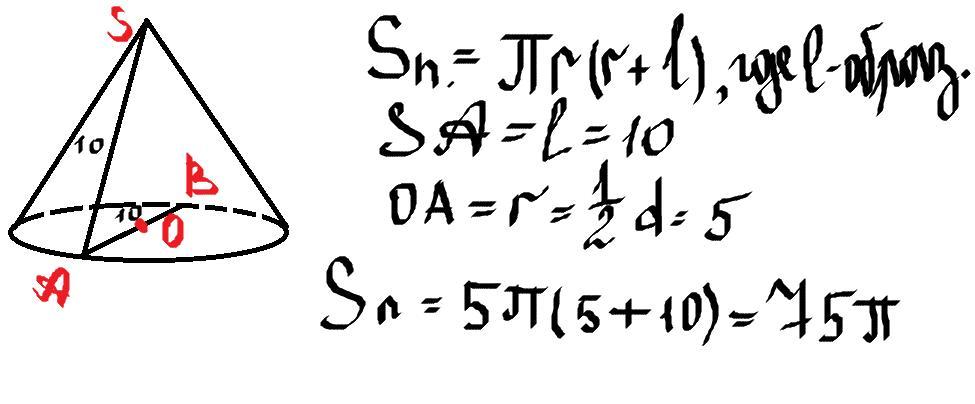 S
10
B
10
O
A
Sп. = πr(r+l), где l-образ.
SA = l = 10
OA = r = 1/2 d = 5
Sп = 5π(5+10) = 75π